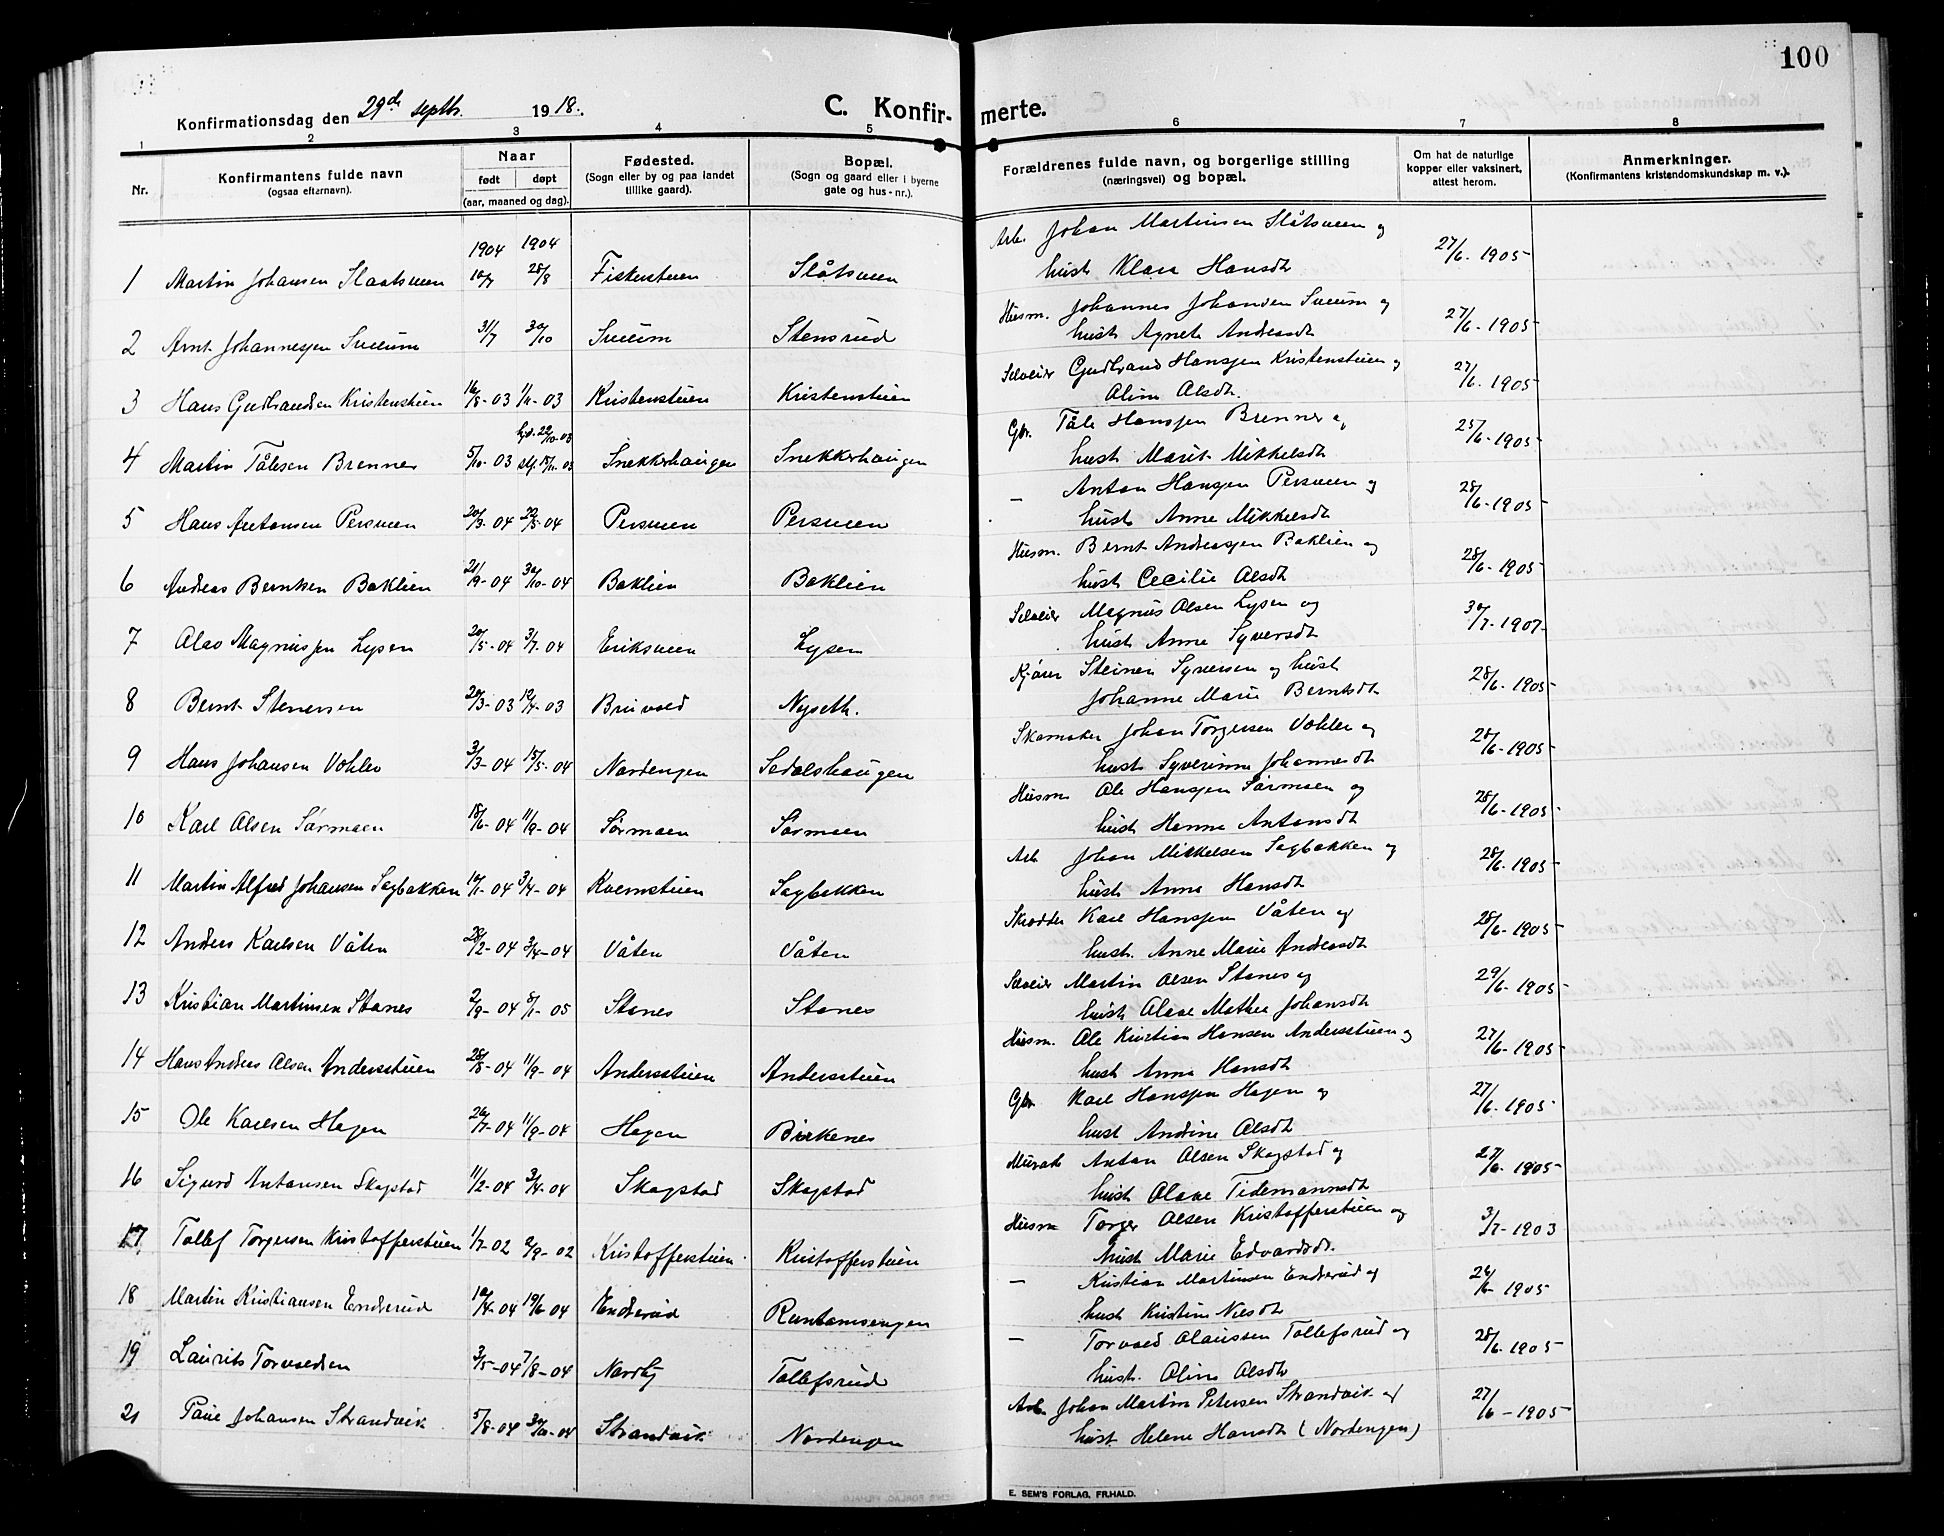 100
Konfirmationsdag den 29de septbr. 1918.
C. Konfir-
merte.
1 2 3 4 5 6 7 8
Nr.
Konfirmantens fulde navn
(ogsaa efternavn).
Naar
født døpt
(aar, maaned og dag).
Fødested.
(Sogn eller by og paa landet
tillike gaard).
Bopæl.
(Sogn og gaard eller i byerne
gate og hus-nr.).
Forældrenes fulde navn, og borgerlige stilling
(næringsvei) og bopæl.
Om hat de naturlige
kopper eller vaksinert,
attest herom.
Anmerkninger.
(Konfirmantens kristendomskundskap m. v.).
1904 1904
Arb. Johan Martinsen Slåtsveen og
1 Martin Johansen Slaatsveen 10/7 28/8 Fiskerstuen Slåtsveen hust Klara Hansdt 27/6-1905
Husm. Johannes Johansen Sveum og
2 Arnt Johannesen Sveum 31/7 30/10 Sveum Stensrud hust Agnete Andreasdt 27/6-1905
Selveier Gudbrand Hansen Kristenstuen og
3 Hans Gudbrandsen Kristenstuen 16/8-03 1/11-03 Kristenstuen Kristenstuen Oline Olsdt. 27/6-1905
hjd. 22/10-03
Gbr. Tåle Hansen Brenner og
4 Martin Tålesen Brenner 5/10-03 stf. 15/11-03 Snekkerhaugen Snekkerhaugen hust Marit Mikkelsdt 25/6-1905
- Anton Hansen Persveen og
5 Hans Antonsen Persveen 20/3-04 22/5-04 Persveen Persveen hust Anne Mikkelsdt 28/6-1905
Husm. Bernt Andreasen Baklien og
6 Andreas Berntsen Baklien 21/9-04 30/10-04 Baklien Baklien hust Cecilie Olsdt 28/6-1905
Selveier Magnus Olsen Lysen og
7 Olav Magnussen Lysen 20/5-04 3/7-04 Eriksveen Lysen hust Anne Syversdt 30/7-1907
Steiner Syversen og hust
8 Bernt Stenersen 20/3-03 12/4-03 Bruvold Nyseth. Johanne Marie Berntsdt 28/6-1905
Skomaker Johan Torgersen Vohler og
9 Hans Johansen Vohler 3/3-04 15/5-04 Nordengen Sedalshaugen hust Syverinne Johannesdt 28/6-1905
Husm Ole Hansen Sørmoen og
10 Karl Olsen Sørmoen 18/6-04 11/9-04 Sørmoen Sørmoen hust Hanna Antonsdt 28/6-1905
Arb Johan Mikkelsen Sagbakken og
11 Martin Alfred Johansen Sagbakken 10/1-04 3/4-04 Kvernstuen Sagbakken hust Anna Hansdt 28/6-1905
Skrædder Karl Hansen Våten og
12 Anders Karlsen Våten 28/2-04 3/4-04 Våten Våten hust. Anne Marie Andreasdt 28/6-1905
Selveier Martin Olsen Stanes og
13 Kristian Martinsen Stanes 2/9-04 8/1-05 Stanes Stanes hust Olave Mathea Johansdt 29/6-1905
Husm. Ole Kristian Hansen Andersstuen og
14 Hans Andreas Olsen Andersstuen 28/8-04 11/9-04 Andersstuen Andersstuen hust Anna Hansdt 27/6-1905
Gbr Karl Hansen Hagen og
15 Ole Karlsen Hagen 26/7-04 11/9-04 Hagen Birkenes hust Andine Olsdt 27/6-1905
Murak Anton Olsen Skogstad og
16 Sigurd Antonsen Skogstad 11/2-04 3/4-04 Skogstad Skogstad hust Olave Tidemannsdt 27/6-1905
Husm Torger Olsen Kristofferstuen og
17 Tollef Torgersen Kristofferstuen 1/7-02 2/9-02 Kristofferstuen. Kristofferstuen hust Marie Edvardsdt. 3/7-1903
- Kristian Martinsen Enderud og
18 Martin Kristiansen Enderud 10/4-04 19/6-04 Enderud hust Kristine Nilsdt 26/6-1905
- Torvald Olaussen Tollefsrud og
19 Laurits Torvaldsen 3/5-04 7/8-04 Nordby Tollefsrud hust. Oline Olsdt 28/6-1905
Arb. Johan Martin Petersen Strandvik og
20 Paul Johansen Strandvik 5/8-04 30/10-04 Strandvik Nordengen hust Helene Hansdt (Nordengen) 27/6-1905
E. SEM'S FORLAG, FR.HALD.